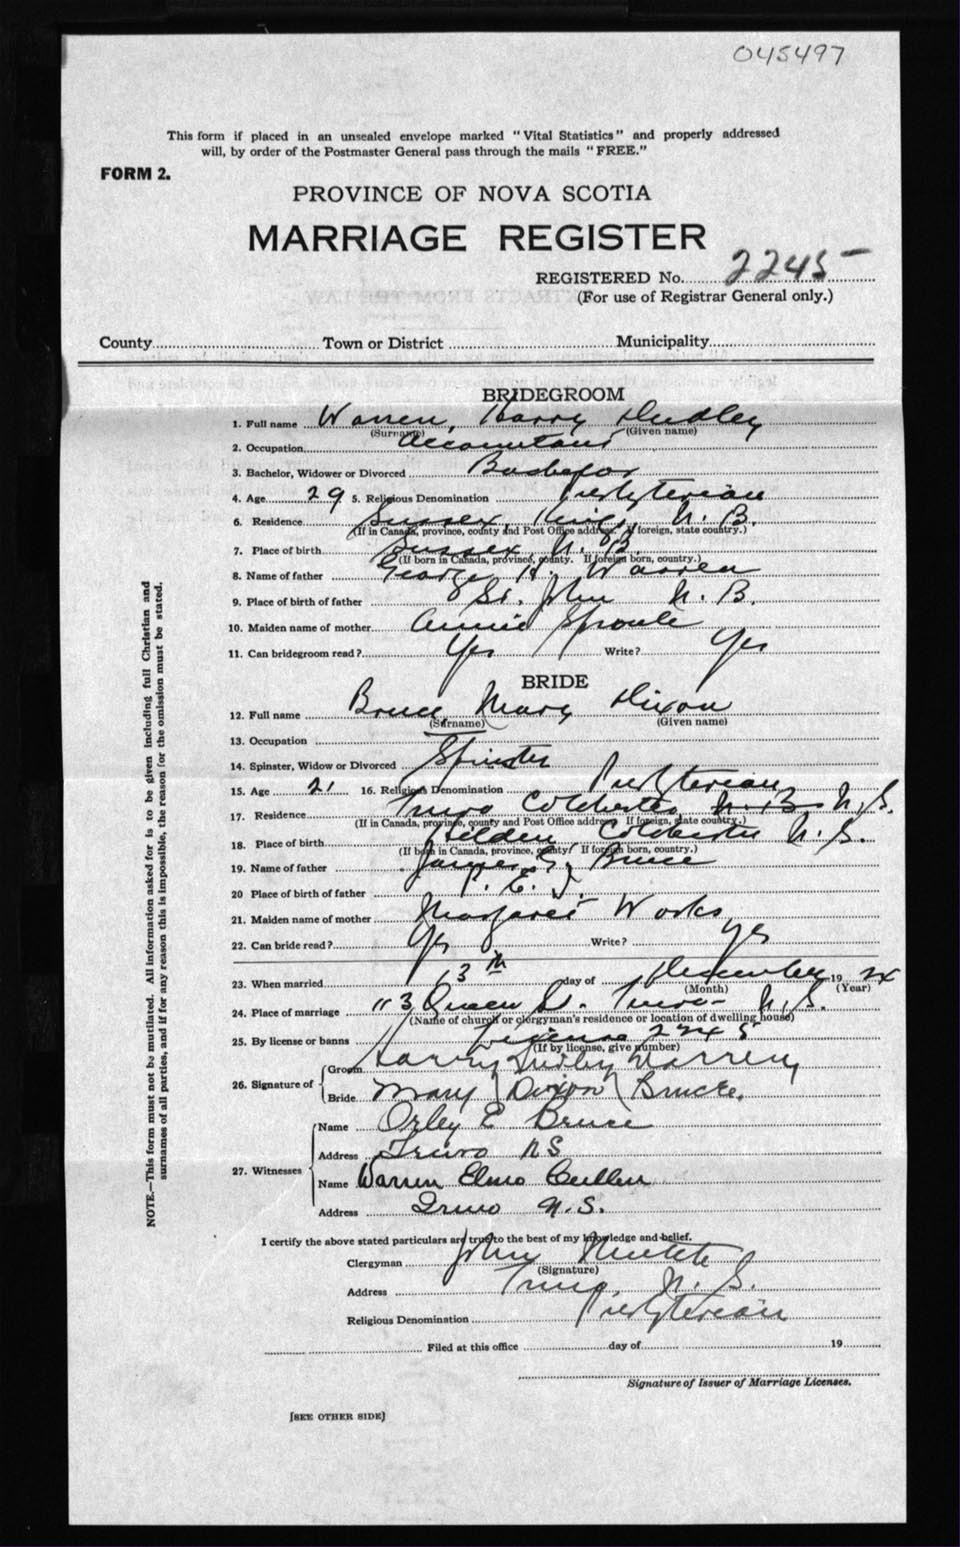 045497
This form if placed in an unsealed envelope marked "Vital Statistics" and properly addressed
will, by order of the Postmaster General pass through the mails "FREE."
FORM 2.
PROVINCE OF NOVA SCOTIA
MARRIAGE REGISTER
REGISTERED No. 2245
(For use of Registrar General only.)
County Town or District Municipality
BRIDEGROOM
1. Full name Warren, Harry Dudley
(Surname) (Given name)
2. Occupation Accountant
3. Bachelor, Widower or Divorced Bachelor
4. Age 29 5. Religious Denomination Presbyterian
6. Residence Sussex Kings N. B.
(If in Canada, province, county and Post Office address. If foreign, state country.)
7. Place of birth Sussex N. B.
(If born in Canada, province, county. If foreign born, country.)
8. Name of father George H. Warren
9. Place of birth of father St. John N. B.
10. Maiden name of mother Annie Sproule
11. Can bridegroom read? Yes Write? Yes
BRIDE
12. Full name Bruce, Mary Dixon
(Surname) (Given name)
13. Occupation
14. Spinster, Widow or Divorced Spinster
15. Age 21 16. Religious Denomination Presbyterian
17. Residence Truro Colchester N. B. N. S.
(If in Canada, province, county and Post Office address. If foreign, state country.)
18. Place of birth Hilden Colchester N. S.
(If born in Canada, province, county. If foreign born, country.)
19. Name of father James Bruce
20 Place of birth of father P. E. I.
21. Maiden name of mother Margaret Works
22. Can bride read? Yes Write? Yes
23. When married 13th day of December 1924
(Month) (Year)
24. Place of marriage 113 Queen St. Truro N. S.
(Name of church or clergyman's residence or location of dwelling house)
25. By license or banns License 2245
(If by license, give number)
26. Signature of
Groom Harry Dudley Warren
Bride Mary Dixon Bruce.
27. Witnesses
Name Orley E Bruce
Address Truro NS
Name Warren Elmo Cullen
Address Truro N.S.
I certify the above stated particulars are true to the best of my knowledge and belief.
Clergyman John
(Signature)
Address Truro, N. S.
Religious Denomination Presbyterian
Filed at this office day of 19
Signature of Issuer of Marriage Licenses.
[SEE OTHER SIDE]
NOTE.—This form must not be mutilated. All information asked for is to be given including full Christian and
surnames of all parties, and if for any reason this is impossible, the reason for the omission must be stated.